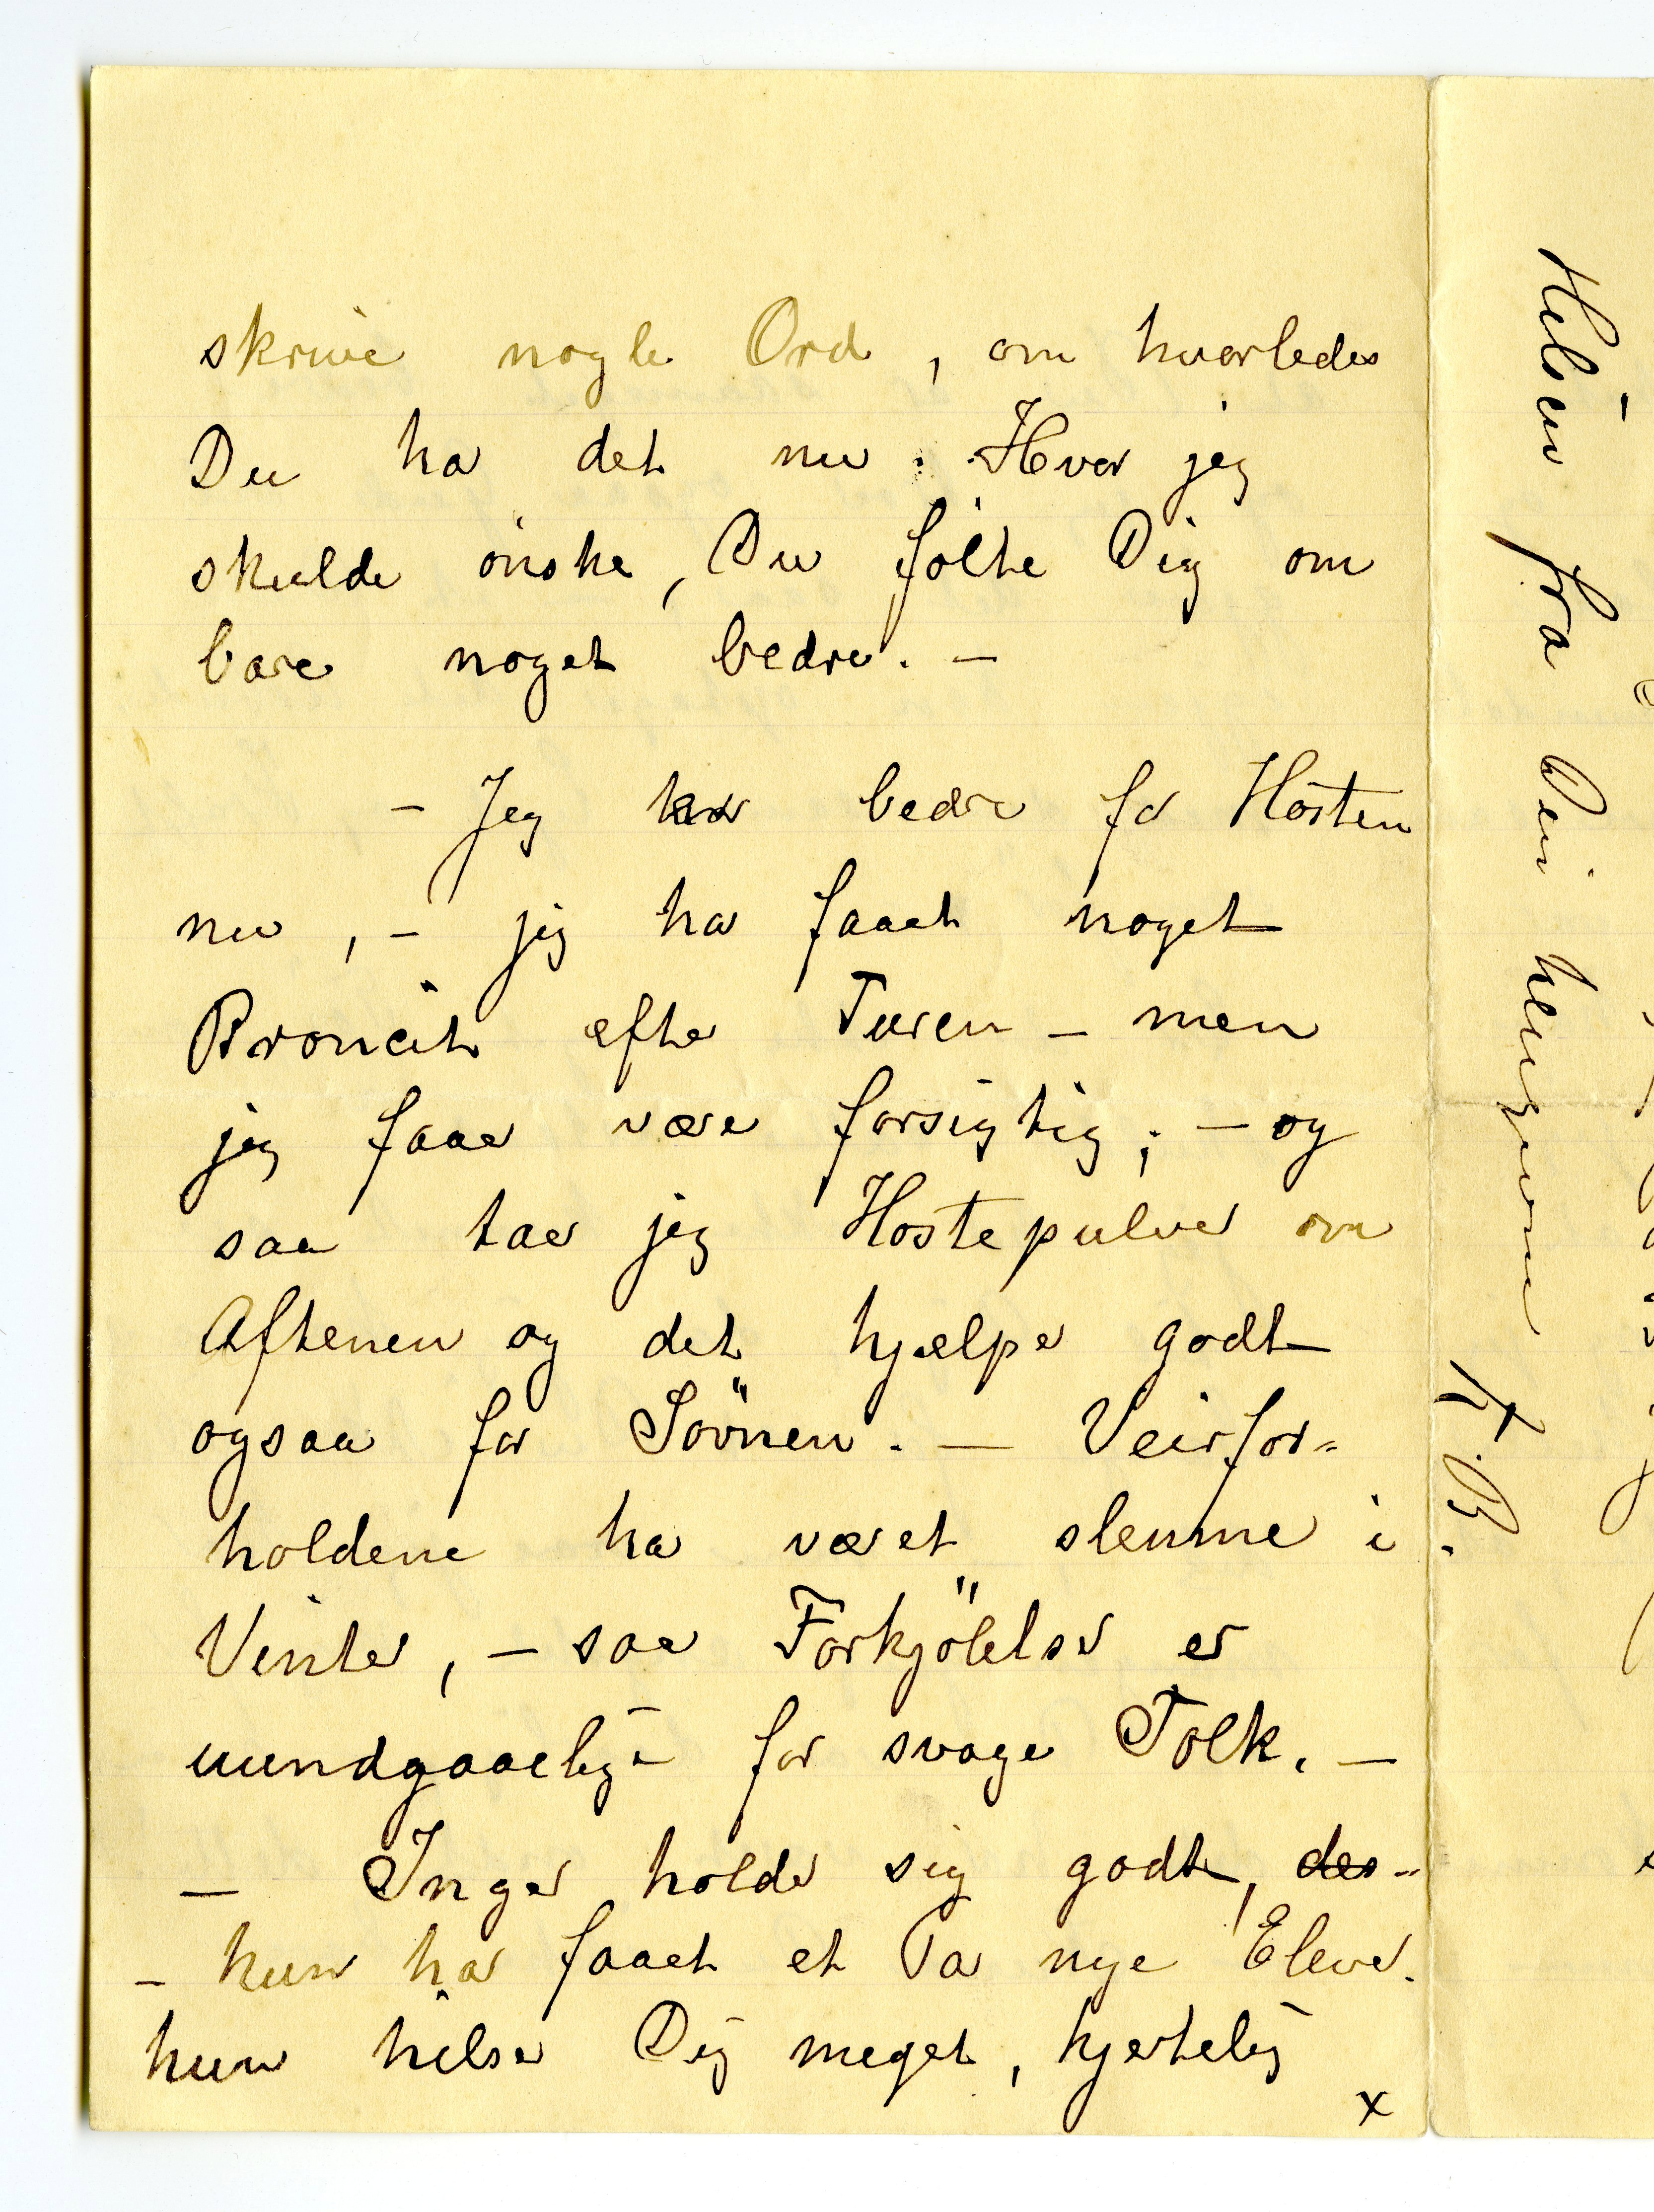 skrive nogle Ord, om hvorledes
Du har det nu. Hvor jeg
skulde ønske, Du følte Dig om
bare noget bedre. –
– Jeg er bedre for Hosten
nu, – jeg har faaet noget
Broncit efter Turen – men
jeg faaer være forsigtig; – og
saa taer jeg Hostepulver om
Aftenen og det hjælper godt
ogsaa for Sövnen. – Veirfor-
holdene har været slemme i
Vinter, – saa Forkjölelser er
uundgaaelige for svage Folk. –
– Inger holder sig godt, des-
– hun har faaet et Par nye Elever.
hun hilser Dig meget, hjertelig
x
Hilsen fra Din hengivne
K. B.